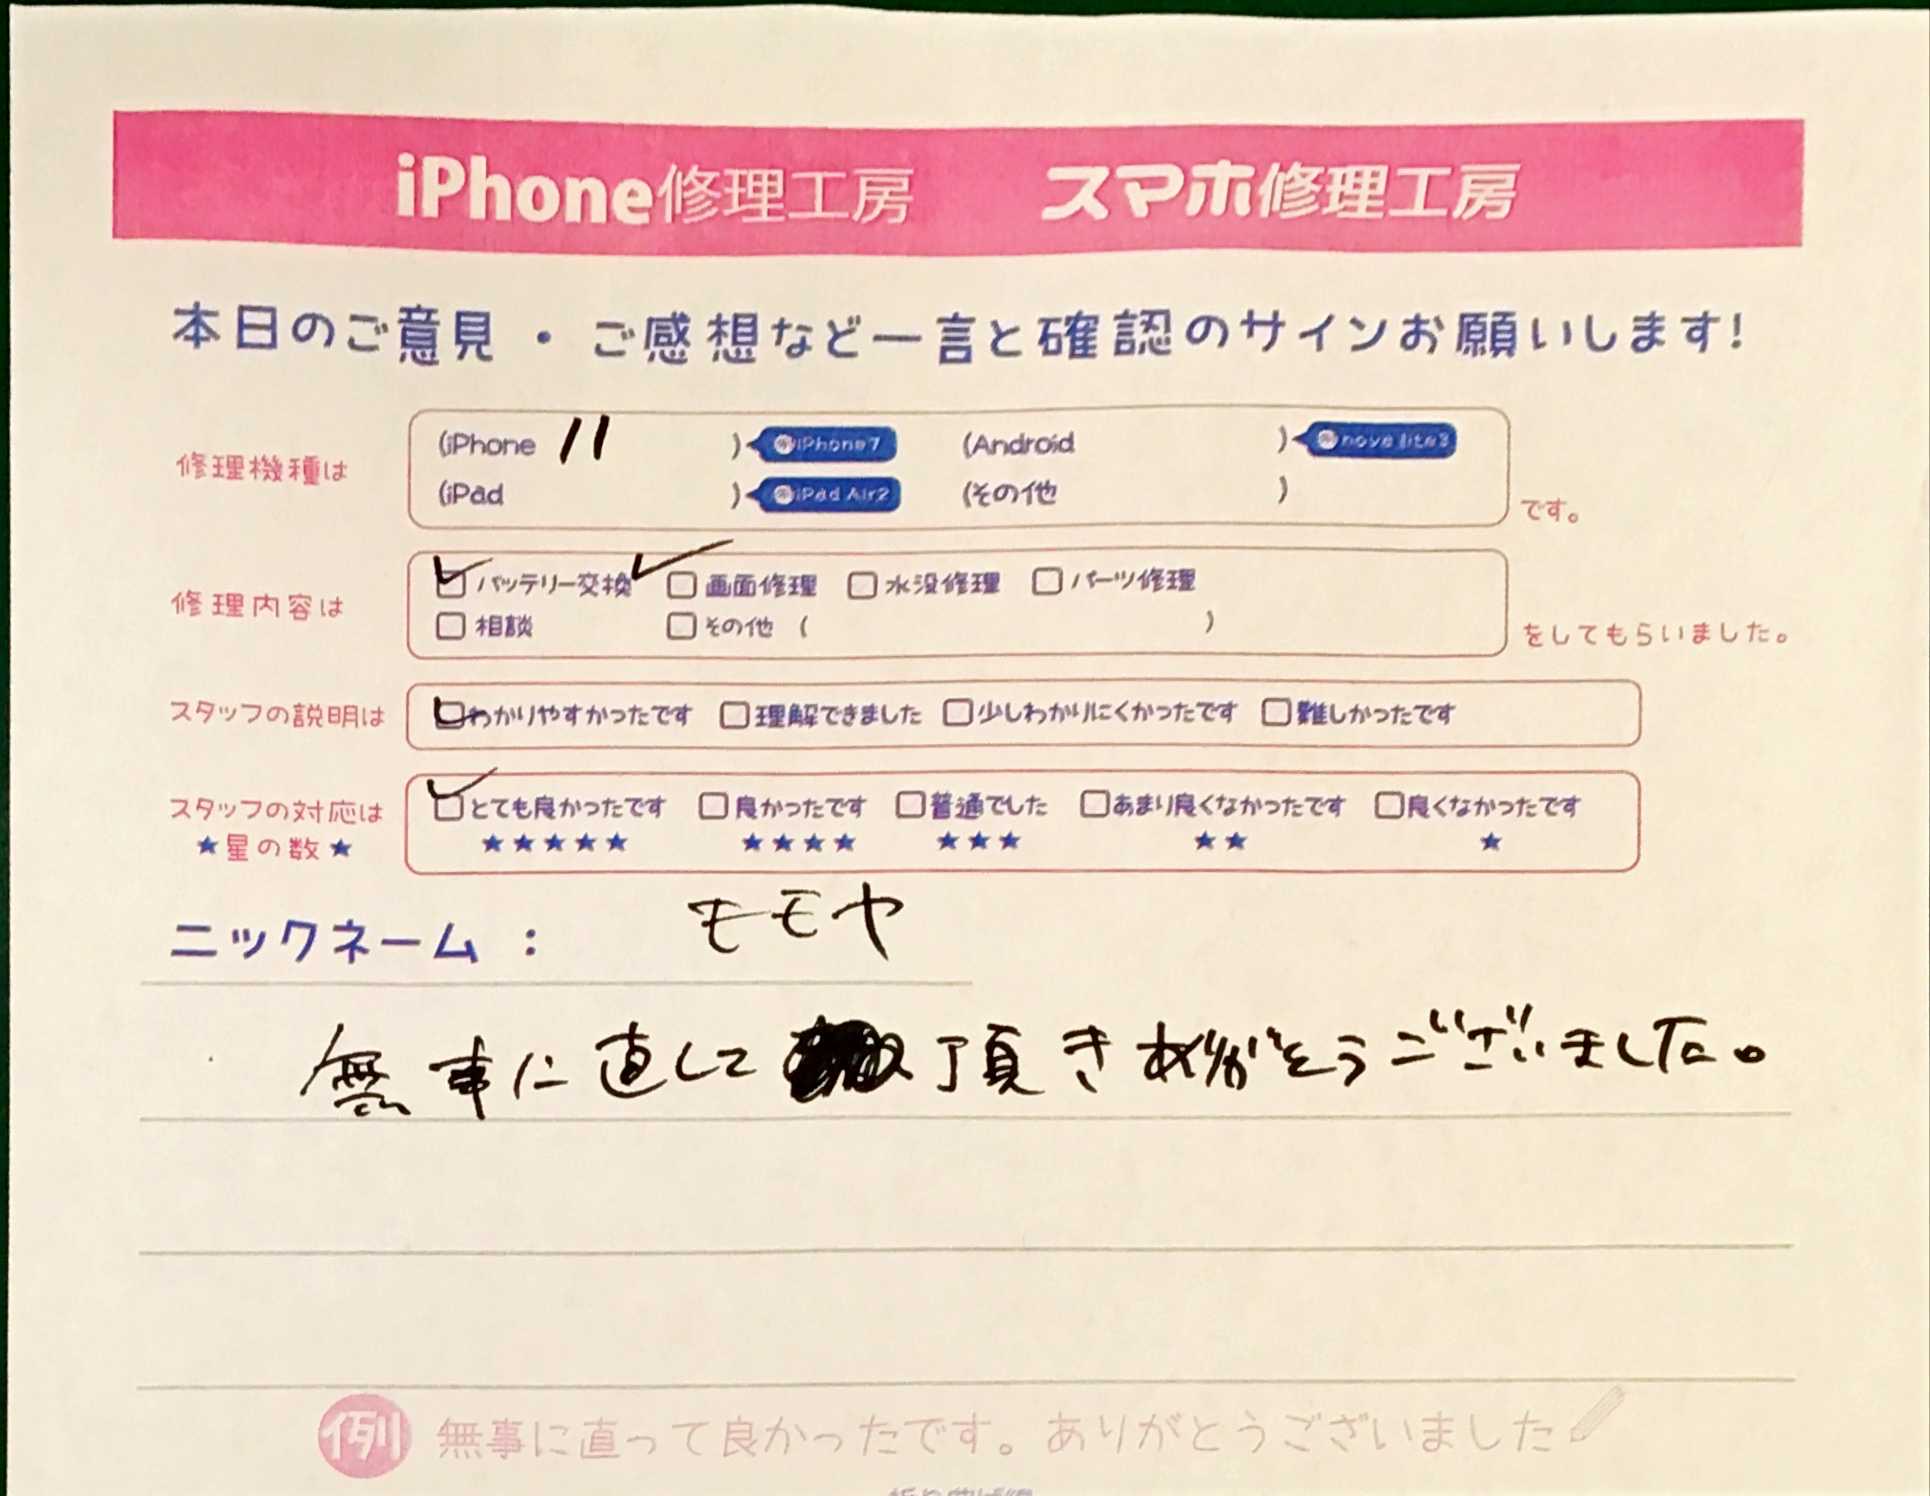 iPhone修理工房 スマホ修理工房
本日のご意見・ご感想など一言と確認のサインお願いします!
修理機種は (iPhone 11 ) 例iPhone7 (Android ) 例nova lite3
(iPad ) 例iPad Air2 (その他 ) です。
修理内容は ☑バッテリー交換 ☑画面修理 □水没修理 □パーツ修理
□相談 □その他 ( ) をしてもらいました。
スタッフの説明は ☑わかりやすかったです □理解できました □少しわかりにくかったです □難しかったです
スタッフの対応は ☑とても良かったです □良かったです □普通でした □あまり良くなかったです □良くなかったです
★星の数★ ★★★★★ ★★★★ ★★★ ★★ ★
ニックネーム: モモヤ
無事に直して頂きありがとうございました。
例 無事に直って良かったです。ありがとうございました